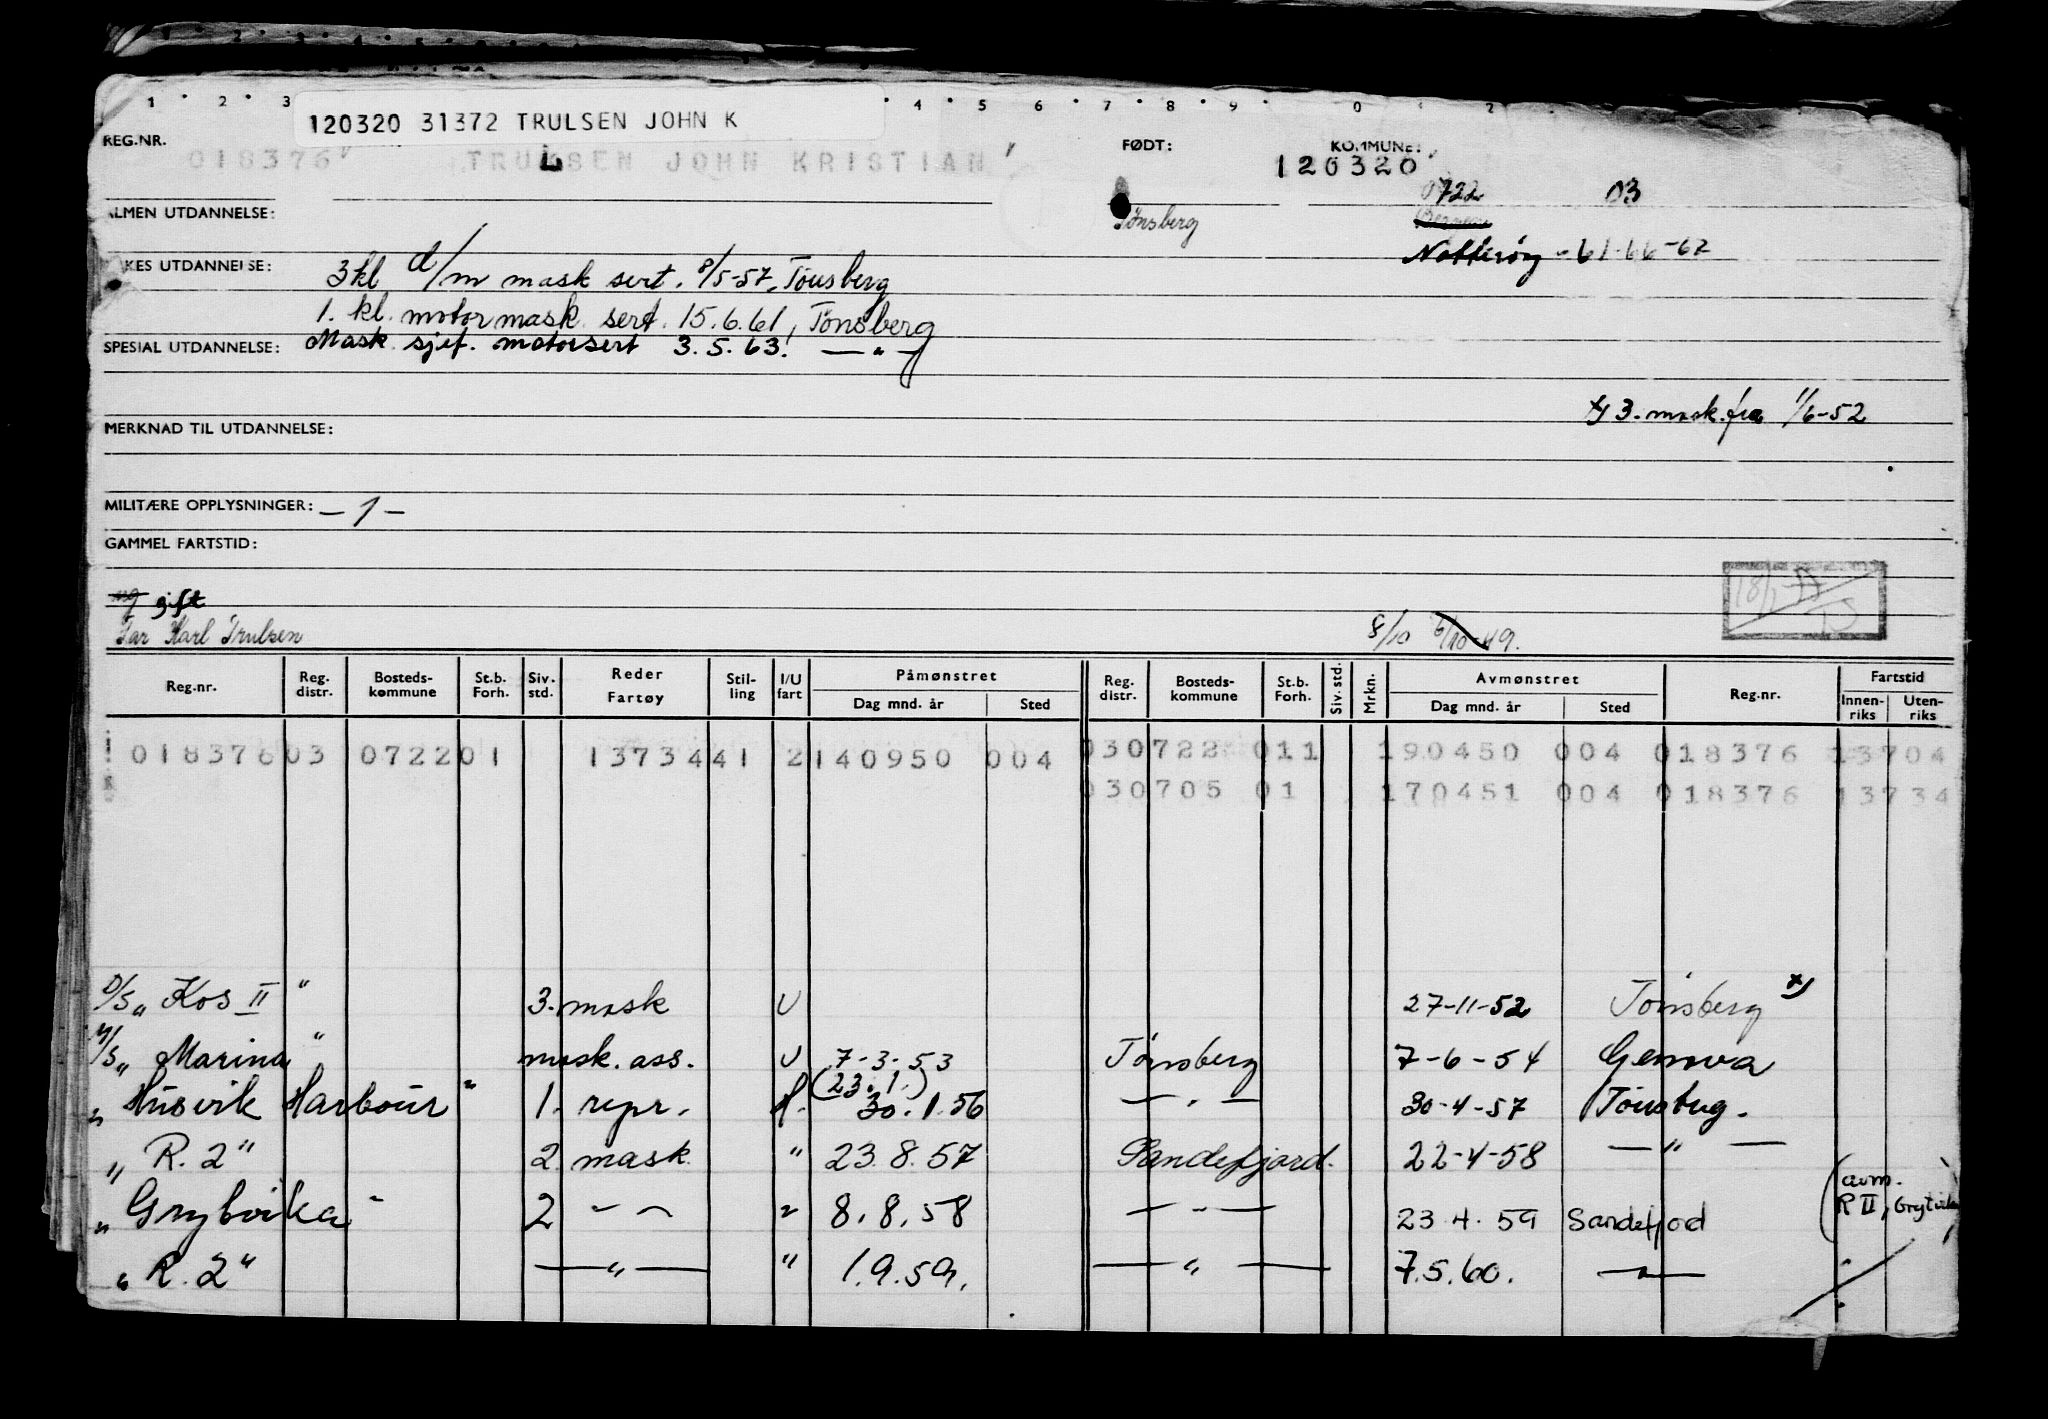 1 2 3 4 5 6 7 8 9 0 2
120320 31372 TRULSEN JOHN K
REG.NR. FØDT: KOMMUNE:
018376 TRULSEN JOHN KRISTIAN 120320
0722 03
ALMEN UTDANNELSE: Tønsberg
Nøtterøy - 61-66-67
YRKES UTDANNELSE: 3kl d/m mask sert. 8/5-57, Tønsberg
1. kl. motormask. sert. 15.6.61, Tønsberg
SPESIAL UTDANNELSE: Mask. sjef. motorsert 3.5.63. — " —
x) 3. mask. fra 1/6-52
MERKNAD TIL UTDANNELSE:
MILITÆRE OPPLYSNINGER: - 1 -
GAMMEL FARTSTID:
ug gift
Far Karl Trulsen
8/10 6/10-49.
Reg.nr. Reg. distr. Bosteds- kommune St.b. Forh. Siv. std. Reder Fartøy Stil- ling I/U fart Påmønstret Dag mnd. år Sted Reg. distr. Bosteds- kommune St.b. Forh. Siv. std. Mrkn. Avmønstret Dag mnd. år Sted Reg.nr. Fartstid Innen- riks Uten- riks
018376 03 0722 01 1373441 2 140950 004 030722 011 190450 004 018376 13704
030705 01 170451 004 018376 13734
D/S " Kos II " 3. mask U 27-11-52 Tønsberg x)
M/S " Marina " mask. ass. U 7-3-53 Tønsberg 7-6-54 Genova
(23.1.)
" Husvik Harbour " 1. repr. H. 30.1.56 — " — 30-4-57 Tønsberg.
" R. 2 " 2. mask. " 23.8.57 Sandefjord. 22-4-58 — " —
(avm. R II, Grytvika)
" Grytvika " 2 — " — " 8.8.58 — " — 23.4.59 Sandefjord
" R. 2 " — " — " 1.9.59. — " — 7.5.60. — " —